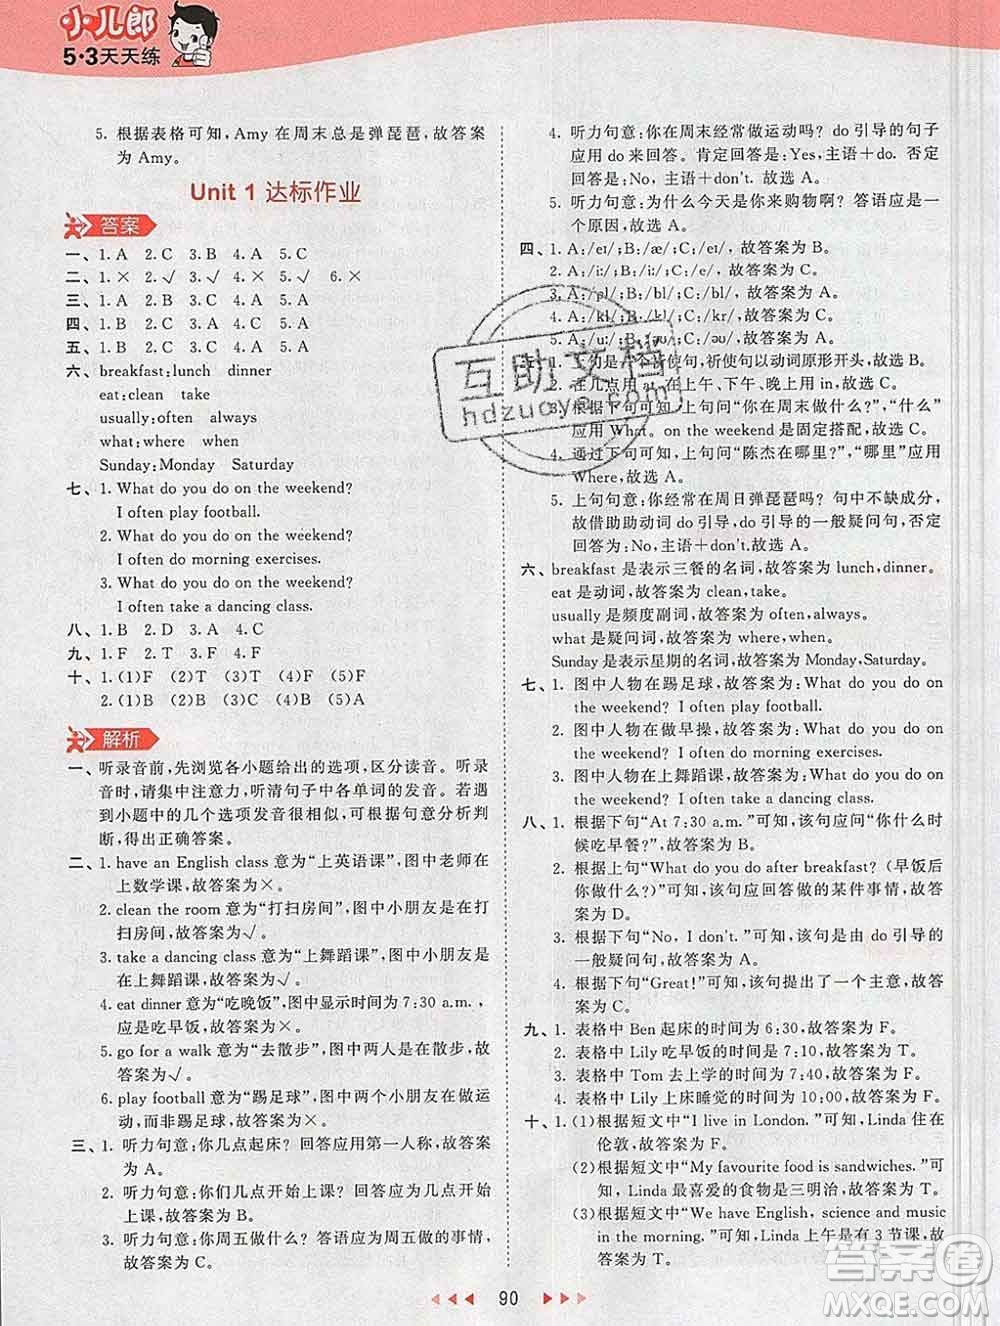 小儿郎
5·3天天练
5. 根据表格可知,Amy 在周末总是弹琵琶,故答案
为 Amy。
Unit 1 达标作业
答案
一、1. A 2. C 3. B 4. A 5. C
二、1. × 2. √ 3. √ 4. × 5. √ 6. ×
三、1. A 2. B 3. C 4. A 5. A
四、1. B 2. A 3. A 4. C 5. A
五、1. B 2. A 3. C 4. A 5. A
六、breakfast:lunch dinner
eat:clean take
usually:often always
what:where when
Sunday:Monday Saturday
七、1. What do you do on the weekend?
I often play football.
2. What do you do on the weekend?
I often do morning exercises.
3. What do you do on the weekend?
I often take a dancing class.
八、1. B 2. D 3. A 4. C
九、1. F 2. T 3. F 4. F
十、1. (1)F (2)T (3)T (4)F (5)F
2. (1)B (2)C (3)B (4)B (5)A
解析
一、听录音前,先浏览各小题给出的选项,区分读音。听录
音时,请集中注意力,听清句子中各单词的发音。若遇
到小题中的几个选项发音很相似,可根据句意分析判
断,得出正确答案。
二、1. have an English class 意为“上英语课”,图中老师在
上数学课,故答案为×。
2. clean the room 意为“打扫房间”,图中小朋友在打
扫房间,故答案为√。
3. take a dancing class 意为“上舞蹈课”,图中小朋友
在上舞蹈课,故答案为√。
4. eat dinner 意为“吃晚饭”,图中显示时间为 7:30 a.m.,
应是吃早饭,故答案为×。
5. go for a walk 意为“去散步”,图中两人是在散步,故
答案为√。
6. play football 意为“踢足球”,图中小朋友在做运
动,而非踢足球,故答案为×。
三、1. 听力句意:你几点起床? 回答应用第一人称,故答案
为 A。
2. 听力句意:你们几点开始上课? 回答应为几点开始
上课,故答案为 B。
3. 听力句意:你周五做什么? 答语应为做的事情,
故答案为 C。
4. 听力句意:你在周末经常做运动吗? do 引导的句子
应用 do 来回答。肯定回答为:Yes,主语+do. 否定
回答为:No,主语+don't. 故选 A。
5. 听力句意:为什么今天是你来购物啊? 答语应为
一个原因,故选 A。
四、1. A:/eɪ/;B:/æ/;C:/eɪ/,故答案为 B。
2. A:/i:/;B:/i:/;C:/e/,故答案为 A。
3. A:/pl/;B:/bl/;C:/bl/,故答案为 A。
4. A:/kl/;B:/kl/;C:/kr/,故答案为 C。
5. A:/u:/;B:/əʊ/;C:/əʊ/,故答案为 A。
五、1. 上句是个祈使句,祈使句以动词原形开头,故选 B。
2. 在几点用 at,在上午、下午、晚上用 in,故选 A。
3. 根据下句可知,上句问“你在周末做什么?”,“什么”
应用 What。on the weekend 是固定搭配,故选 C。
4. 通过下句可知,上句问“陈杰在哪里?”,“哪里”应用
Where,故选 A。
5. 上句句意:你经常在周日弹琵琶吗? 句中不缺成分,
故借助助动词 do 引导,do 引导的一般疑问句,否定
回答为:No,主语+don't. 故选 A。
六、breakfast 是表示三餐的名词,故答案为 lunch,dinner。
eat 是动词,故答案为 clean,take。
usually 是频度副词,故答案为 often,always。
what 是疑问词,故答案为 where,when。
Sunday 是表示星期的名词,故答案为 Monday,Saturday。
七、1. 图中人物在踢足球,故答案为:What do you do on
the weekend? I often play football.
2. 图中人物在做早操,故答案为:What do you do on
the weekend? I often do morning exercises.
3. 图中人物在上舞蹈课,故答案为:What do you do on
the weekend? I often take a dancing class.
八、1. 根据下句“At 7:30 a.m.”可知,该句应问“你什么时
候吃早餐?”,故答案为 B。
2. 根据上句“What do you do after breakfast? (早饭后
你做什么?)”可知,该句应回答做的某件事情,故答
案为 D。
3. 根据下句“No, I don't.”可知,该句是由 do 引导的
一般疑问句,故答案为 A。
4. 根据下句“Great!”可知,该句提出了一个主意,故
答案为 C。
九、1. 表格中 Ben 起床的时间为 6:30,故答案为 F。
2. 表格中 Lily 吃早饭的时间是 7:10,故答案为 T。
3. 表格中 Tom 去上学的时间为 7:50,故答案为 F。
4. 表格中 Lily 上床睡觉的时间为 10:00,故答案为 F。
十、1. (1)根据短文中“I live in London.”可知,Linda 住在
伦敦,故答案为 F。
(2)根据短文中“My favourite food is sandwiches.”可
知,Linda 最喜爱的食物是三明治,故答案为 T。
(3)根据短文中“We have English, science and music
in the morning.”可知,Linda 上午是有 3 节课,故
答案为 T。
90
互助文档
hdzuoye.com
答案圈
MXQE.COM